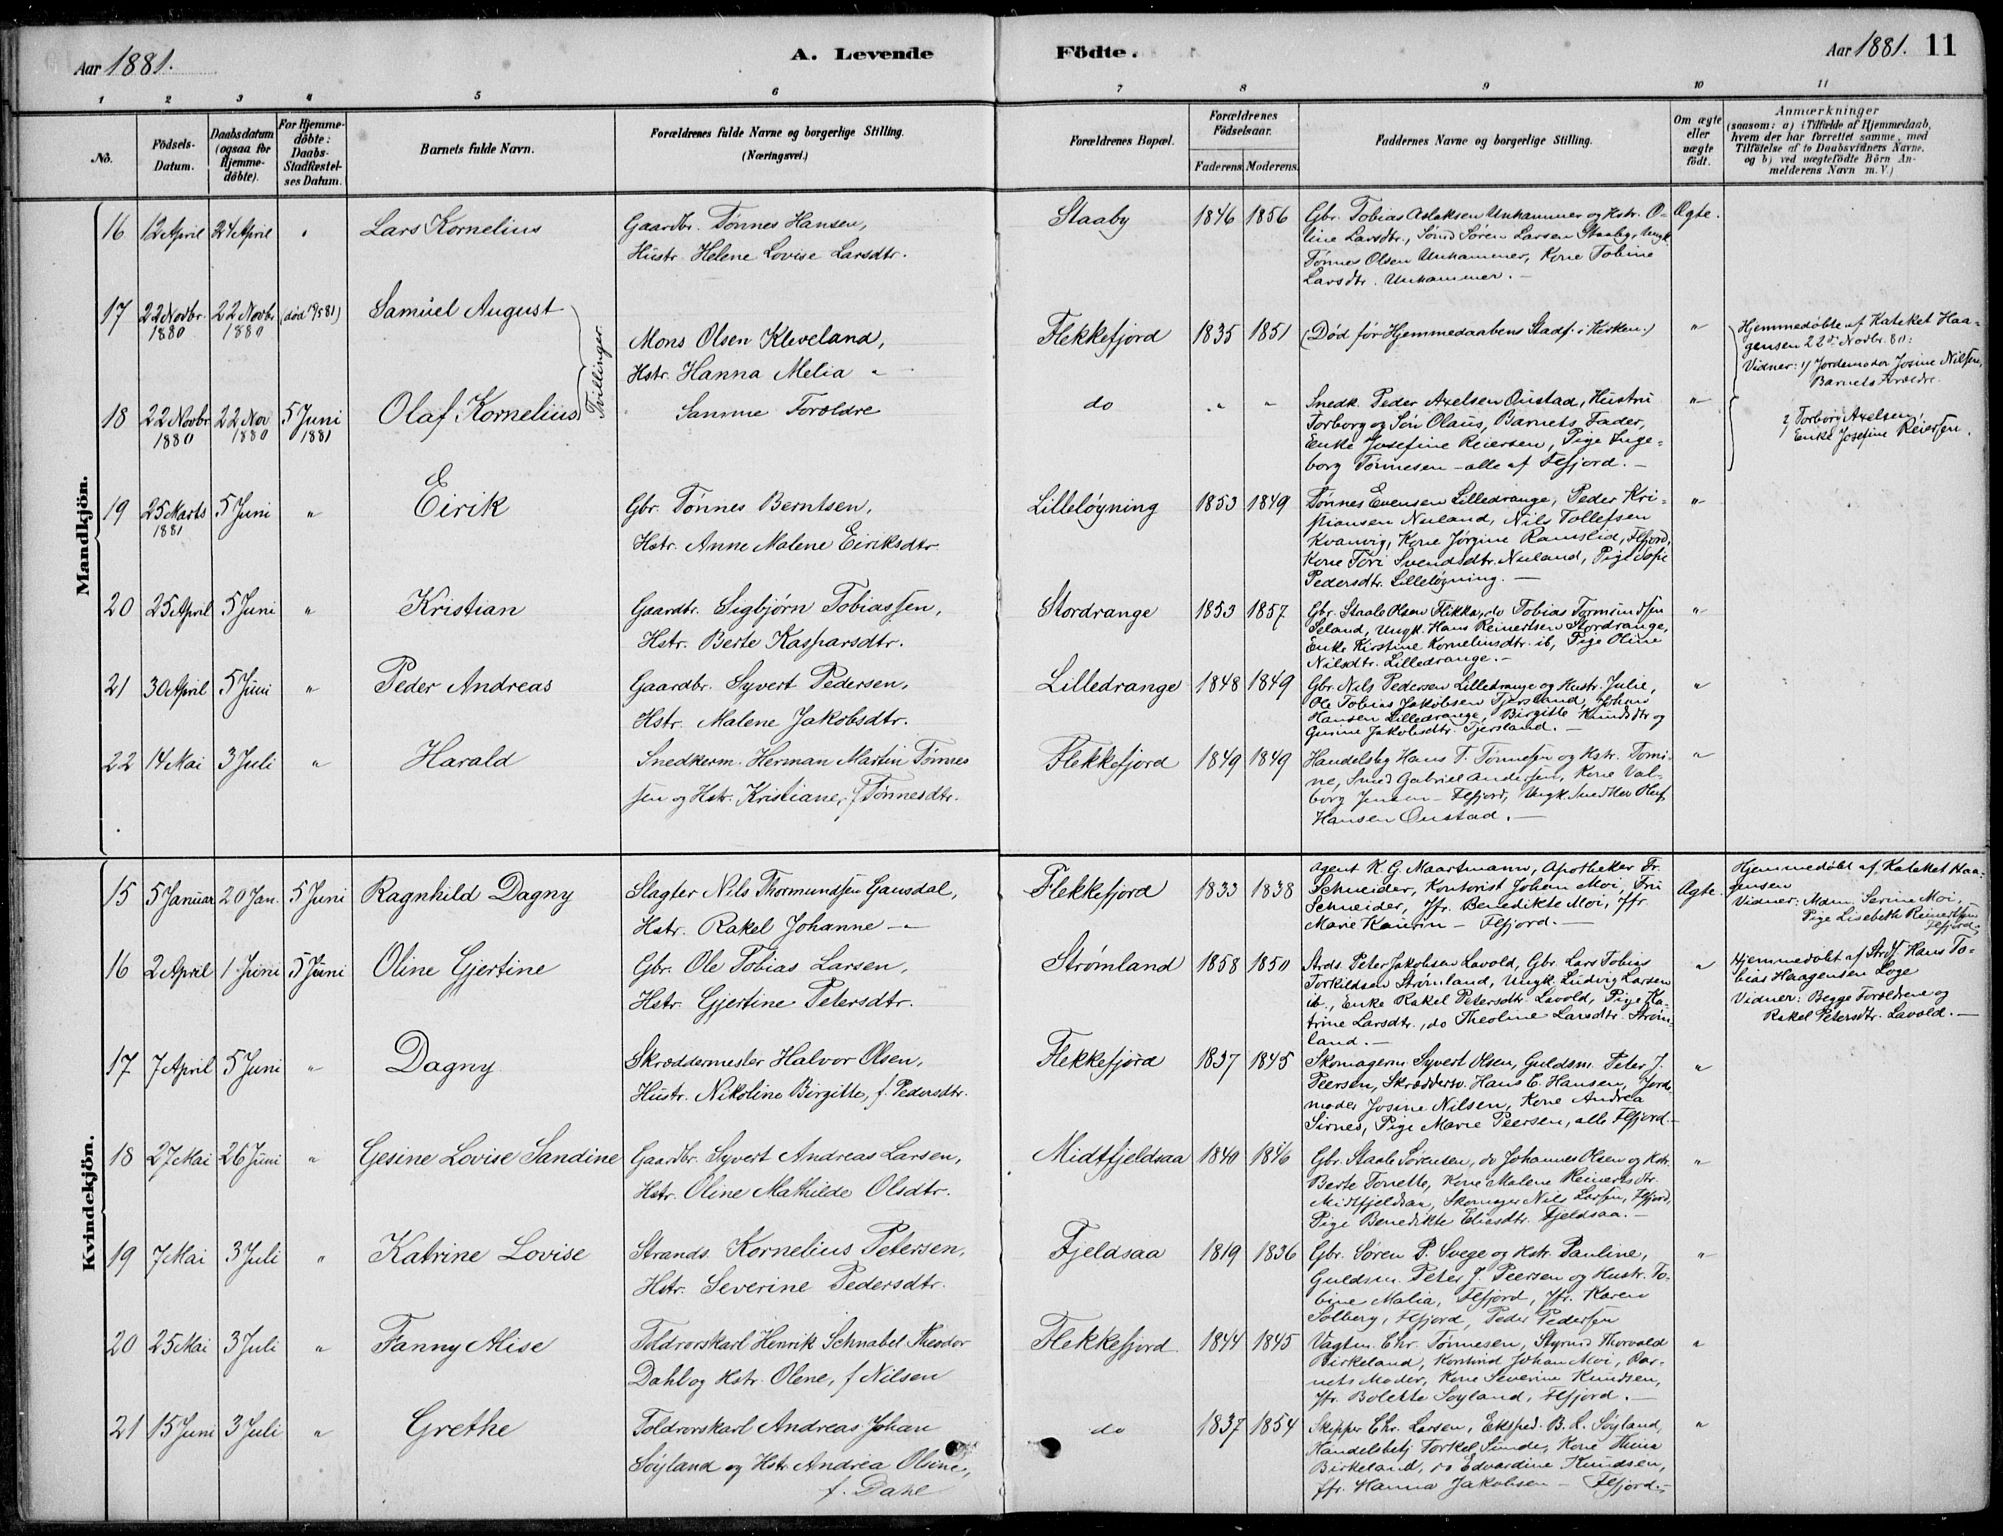 Aar 1881.
A. Levende
Födte.
Aar 1881.
11
1 2 3 4 5 6 7 8 9 10 11
No.
Födsels-Datum.
Daabsdatum (ogsaa for Hjemme-döbte).
For Hjemme-döbte: Daabs-Stadfæstel-ses Datum.
Barnets fulde Navn.
Forældrenes fulde Navne og borgerlige Stilling.
(Næringsvei.)
Forældrenes Bopæl.
Forældrenes Födselsaar.
Faderens. Moderens.
Faddernes Navne og borgerlige Stilling.
Om ægte eller uægte födt.
Anmærkninger
(saasom: a) i Tilfælde af Hjemmedaab, hvem der har forrettet samme, med Tilföielse af to Daabsvidners Navne, og b) ved uægtefödte Börn An-melderens Navn m. V.)
Mandkjön.
16 12 April 24 April " Lars Kornelius
Gaardbr. Tønnes Hansen,
Hustr. Helene Lovise Larsdtr.
Staaby 1846 1856
Gbr. Tobias Aslaksen Unhammer og Hstr. O-
line Larsdtr., Søren Larsen Staaby, Ungk.
Tønnes Olsen Unhammer, Kone Tobine
Larsdtr. Unhammer. —
Ægte.
17 22 Novbr. 1880 22 Novbr. 1880 (død 81) Samuel August
Tvillinger.
Mons Olsen Kleveland,
Hstr. Hanna Melia "
Flekkefjord 1835 1851
(Død før Hjemmedaabens Stadf. i Kirken.)
"
Hjemmedøbte af Kateket Haa-
gensen 22de Novbr. 80:
Vidner: 1) Jordemoder Josine Nilsen,
Barnets Forældre.
18 22 Novbr 1880 22 Nov 1880 5 Juni 1881 Olaf Kornelius
Samme Forældre
do " "
Snedk. Peder Axelsen Onstad, Hustru
Torborg og Søn Olaus, Barnets Fader,
Enke Josefine Reiersen, Pige Inge-
borg Tønnesen — alle af Flfjord. —
"
2) Torborg Axelsen,
Enke Josefine Reiersen.
19 25 Marts 1881 5 Juni " Eirik
Gbr. Tønnes Berntsen,
Hstr. Anne Malene Eiriksdtr
Lilleløyning 1853 1849
Tønnes Evensen Lilledrange, Peder Kri-
stiansen Neuland, Nils Tollefsen
Kvanvig, Kone Jørgine Ramslid, Flfjord,
Kone Tori Svendsdtr. Neuland, Pige Sofie
Pedersdtr. Lilleløyning. —
"
20 25 April 5 Juni " Kristian
Gaardbr. Sigbjørn Tobiassen,
Hstr. Berte Kasparsdtr.
Stordrange 1853 1857
Gbr. Staale Olsen Flikka, do Tobias Tormundsen
Seland, Ungk. Hans Reinertsen Stordrange,
Enke Kirstine Korneliusdtr. ib, Pige Oline
Nilsdtr. Lilledrange. —
"
21 30 April 5 Juni " Peder Andreas
Gaardbr. Syvert Pedersen,
Hstr. Malene Jakobsdtr.
Lilledrange 1848 1849
Gbr. Nils Pedersen Lilledrange og Hustr. Julie,
Ole Tobias Jakobsen Tjersland, Johan
Hansen Lilledrange, Birgitte Knudsdtr og
Gurine Jakobsdtr. Tjersland. —
"
22 14 Mai 3 Juli " Harald
Snedkerm. Herman Martin Tønnes
sen og Hstr. Kristiane, f. Tønnesdtr.
Flekkefjord 1849 1849
Handelsbg Hans T. Tønnesen og Hstr. Tomi-
ne, Smed Gabriel Andersen, Kone Val-
borg Jensen — Flfjord, Ungk. Snedker Oluf
Hansen Onstad. —
"
Kvindekjön.
15 5 Januar 20 Jan. 5 Juni Ragnhild Dagny
Slagter Nils Thormundsen Gausdal,
Hstr. Rakel Johanne —
Flekkefjord 1833 1838
Agent K. G. Maartmann, Apotheker Fr.
Schneider, Kontorist Johan Moi, Fru
Schneider, Jfr. Benedikte Moi, Jfr.
Marie Kaurin — Flfjord. —
Ægte.
Hjemmedøbt af Kateket Haa-
gensen
Vidner: Mdm. Serine Moi,
Pige Lisebeth Reinertsen
Flfjord.
16 2 April 1 Juni 5 Juni Oline Gjertine
Gbr. Ole Tobias Larsen,
Hstr. Gjertine Petersdtr.
Strømland 1858 1850
Strds. Peter Jakobsen Lavold, Gbr. Lars Tobias
Torkildsen Strømland, Ungk. Ludvig Larsen
ib., Enke Rakel Petersdtr. Lavold, Pige Ka-
trine Larsdtr., do Theoline Larsdtr. Strøm-
land. —
"
Hjemmedøbt af Strdf. Hans To-
bias Haagensen Loge
Vidner: Begge Forældrene og
Rakel Petersdtr. Lavold. —
17 7 April 5 Juni " Dagny
Skræddermester Halvor Olsen,
Hustr. Nikoline Birgitte, f. Pedersdtr.
Flekkefjord 1837 1845
Skomagerm. Syvert Olsen, Guldsm. Peter J.
Peersen, Skræddersv. Hans E. Hansen, Jorde-
moder Josine Nilsen, Kone Andrea
Sirnes, Pige Marie Peersen, alle Flfjord. —
"
18 27 Mai 26 Juni " Gesine Lovise Sandine
Gaardbr. Syvert Andreas Larsen,
Hstr. Oline Mathilde Olsdtr.
Midtfjeldsaa 1840 1846
Gbr. Staale Sørensen, do Johannes Olsen og Hstr.
Berte Tonette, Kone Malene Reinertsdtr.
Midtfjeldsaa, Skomager Nils Larsen, Flfjord,
Pige Benedikte Eliasdtr. Fjeldsaa. —
"
19 7 Mai 3 Juli " Katrine Lovise
Strands. Kornelius Petersen,
Hstr. Severine Pedersdtr.
Fjeldsaa 1819 1836
Gbr. Søren P. Svege og Hstr. Pauline,
Guldsm. Peter J. Peersen og Hustr. To-
bine Malia, Flfjord, Jfr. Karen
Solberg, Flfjord, Peder Pedersen
"
20 25 Mai 3 Juli " Fanny Alise
Toldrorskarl Henrik Schnabel Theodor
Dahl og Hstr. Olene, f. Nilsen
Flekkefjord. 1844 1845
Vagtm. Chr. Tønnesen, Styrmd Thorvald
Birkeland, Kontorist Johan Moi, Bar-
nets Moder, Kone Severine Knudsen,
Jfr. Bolette Søyland, Flfjord. —
"
21 15 Juni 3 Juli " Grethe
Toldrorskarl Andreas Johan
Søyland og Hstr. Andrea Olsine,
f. Dahl
do 1837 1854
Skipper Chr. Larsen, Eksped. B. L. Søyland,
Handelsbetj Torkel Sunde, Kone Thina
Birkeland, do Edvardine Knudsen,
Jfr. Hanna Jakobsen — Flfjord. —
"